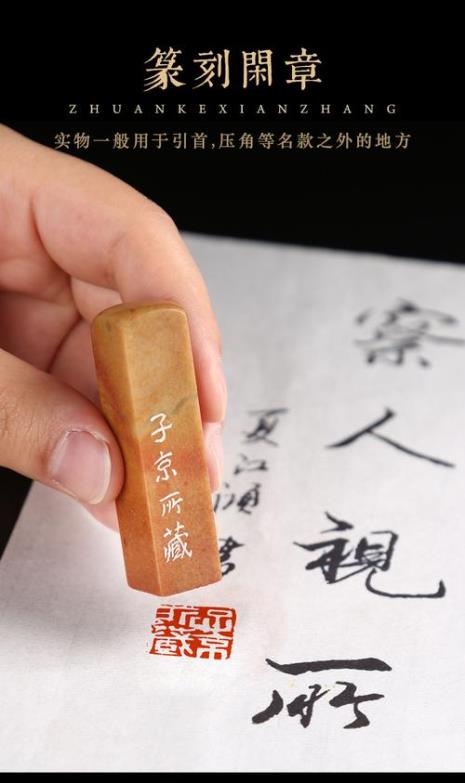 篆刻閑章
ZHUANKEXIANZHANG
实物一般用于引首,压角等名款之外的地方
察人視所
夏江
子京所藏